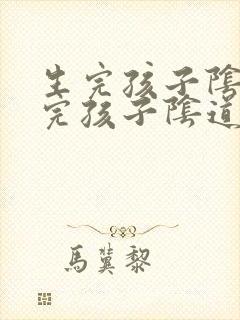 生完孩子陰
完孩子陰道
馬冀黎